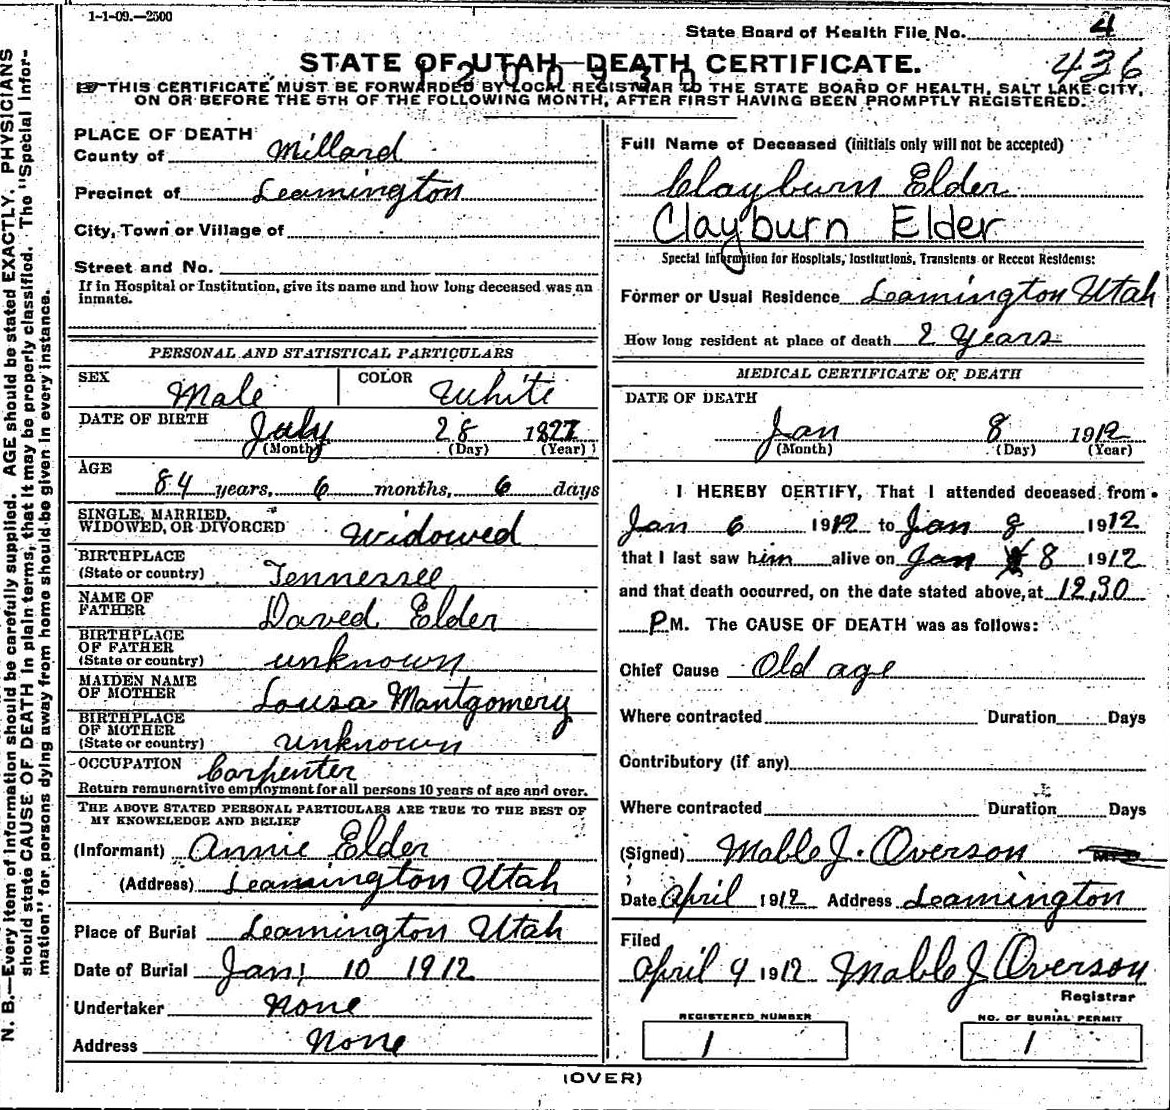 1-1-09.—2500
State Board of Health File No. 4
436
STATE OF UTAH—DEATH CERTIFICATE.
1200930
THIS CERTIFICATE MUST BE FORWARDED BY LOCAL REGISTRAR TO THE STATE BOARD OF HEALTH, SALT LAKE CITY,
ON OR BEFORE THE 5TH OF THE FOLLOWING MONTH, AFTER FIRST HAVING BEEN PROMPTLY REGISTERED.
N. B.—Every item of information should be carefully supplied. AGE should be stated EXACTLY. PHYSICIANS
should state CAUSE OF DEATH in plain terms, that it may be properly classified. The "Special Infor-
mation" for persons dying away from home should be given in every instance.
PLACE OF DEATH
County of Millard
Precinct of Leamington
City, Town or Village of
Street and No.
If in Hospital or Institution, give its name and how long deceased was an
inmate.
PERSONAL AND STATISTICAL PARTICULARS
SEX Male COLOR White
DATE OF BIRTH July 28 1827
(Month) (Day) (Year)
AGE 84 years, 6 months, 6 days
SINGLE, MARRIED,
WIDOWED, OR DIVORCED Widowed
BIRTHPLACE
(State or country) Tennessee
NAME OF
FATHER Daved Elder
BIRTHPLACE
OF FATHER
(State or country) unknown
MAIDEN NAME
OF MOTHER Lousa Mantgomery
BIRTHPLACE
OF MOTHER
(State or country) unknown
OCCUPATION Carpenter
Return remunerative employment for all persons 10 years of age and over.
THE ABOVE STATED PERSONAL PARTICULARS ARE TRUE TO THE BEST OF
MY KNOWELEDGE AND BELIEF
(Informant) Annie Elder
(Address) Leamington Utah
Place of Burial Leamington Utah
Date of Burial Jan. 10 1912
Undertaker None
Address None
Full Name of Deceased (initials only will not be accepted)
Clayburn Elder
Clayburn Elder
Special Information for Hospitals, Institutions, Transients or Recent Residents:
Former or Usual Residence Leamington Utah
How long resident at place of death 2 Years
MEDICAL CERTIFICATE OF DEATH
DATE OF DEATH
Jan 8 1912
(Month) (Day) (Year)
I HEREBY CERTIFY, That I attended deceased from
Jan 6 1912 to Jan 8 1912
that I last saw him alive on Jan 8 1912
and that death occurred, on the date stated above, at 12,30
P M. The CAUSE OF DEATH was as follows:
Chief Cause Old age
Where contracted Duration Days
Contributory (if any)
Where contracted Duration Days
(Signed) Mable J. Overson
Date April 1912 Address Leamington
Filed
April 9 1912 Mable J Overson
Registrar
REGISTERED NUMBER
1
NO. OF BURIAL PERMIT
1
(OVER)